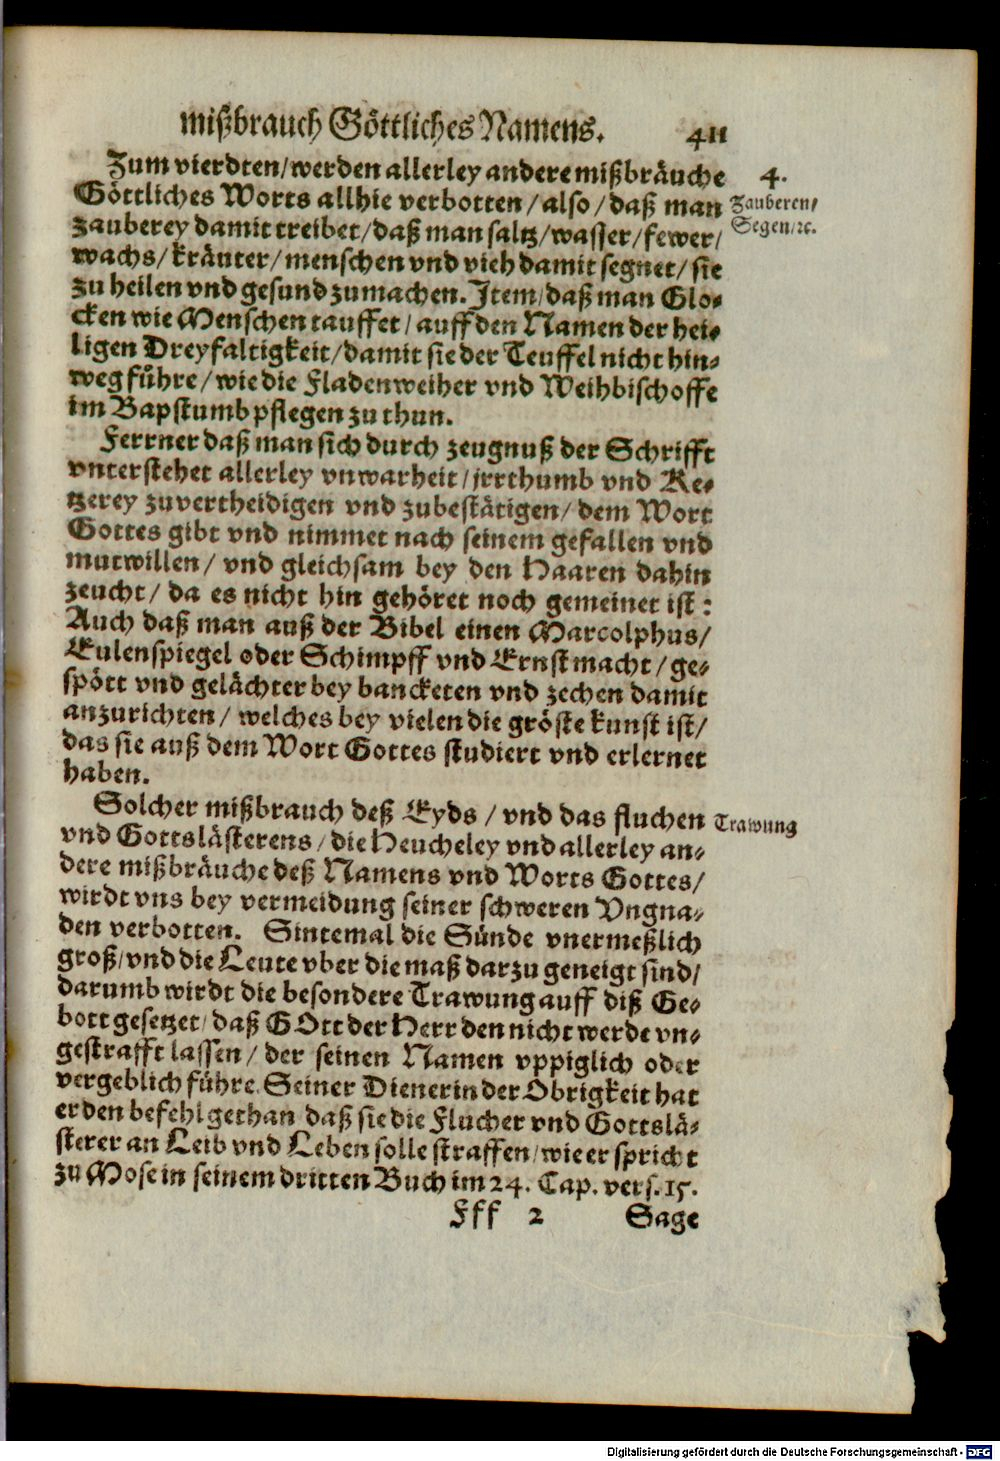 mißbrauch Göttliches Namens. 411
Zum vierdten/werden allerley andere mißbräuche
4.
Göttliches Worts allhie verbotten/also/daß man
Zauberey/
zauberey damit treibet/daß man saltz/wasser/fewer/
Segen/ꝛc.
wachs/kräuter/menschen vnd vieh damit segnet/sie
zu heilen vnd gesund zumachen. Item/daß man Glo-
cken wie Menschen tauffet/auff den Namen der hei-
ligen Dreyfaltigkeit/damit sie der Teuffel nicht hin-
weg führe/wie die Fladenweiher vnd Weihbischoffe
im Bapstumb pflegen zu thun.
Ferrner daß man sich durch zeugnuß der Schrifft
vnterstehet allerley vnwarheit/jrrthumb vnd Ke-
tzerey zuvertheidigen vnd zubestätigen/dem Wort
Gottes gibt vnd nimmet nach seinem gefallen vnd
mutwillen/ vnd gleichsam bey den Haaren dahin
zeucht/ da es nicht hin gehöret noch gemeinet ist:
Auch daß man auß der Bibel einen Marcolphus/
Eulenspiegel oder Schimpff vnd Ernst macht/ge-
spött vnd gelächter bey bancketen vnd zechen damit
anzurichten/ welches bey vielen die gröste kunst ist/
das sie auß dem Wort Gottes studiert vnd erlernet
haben.
Solcher mißbrauch deß Eyds / vnd das fluchen
Trawung
vnd Gottslästerens/die Heucheley vnd allerley an-
dere mißbräuche deß Namens vnd Worts Gottes/
wirdt vns bey vermeidung seiner schweren Vngna-
den verbotten. Sintemal die Sünde vnermeßlich
groß/vnd die Leute vber die maß darzu geneigt sind/
darumb wirdt die besondere Trawung auff diß Ge-
bott gesetzet/daß GOtt der Herr den nicht werde vn-
gestrafft lassen/ der seinen Namen vppiglich oder
vergeblich führe. Seiner Dienerin der Obrigkeit hat
er den befehl gethan daß sie die Flucher vnd Gottslä-
sterer an Leib vnd Leben solle straffen/wie er spricht
zu Mose in seinem dritten Buch im 24. Cap. vers. 15.
Fff 2 Sage
Digitalisierung gefördert durch die Deutsche Forschungsgemeinschaft - DFG